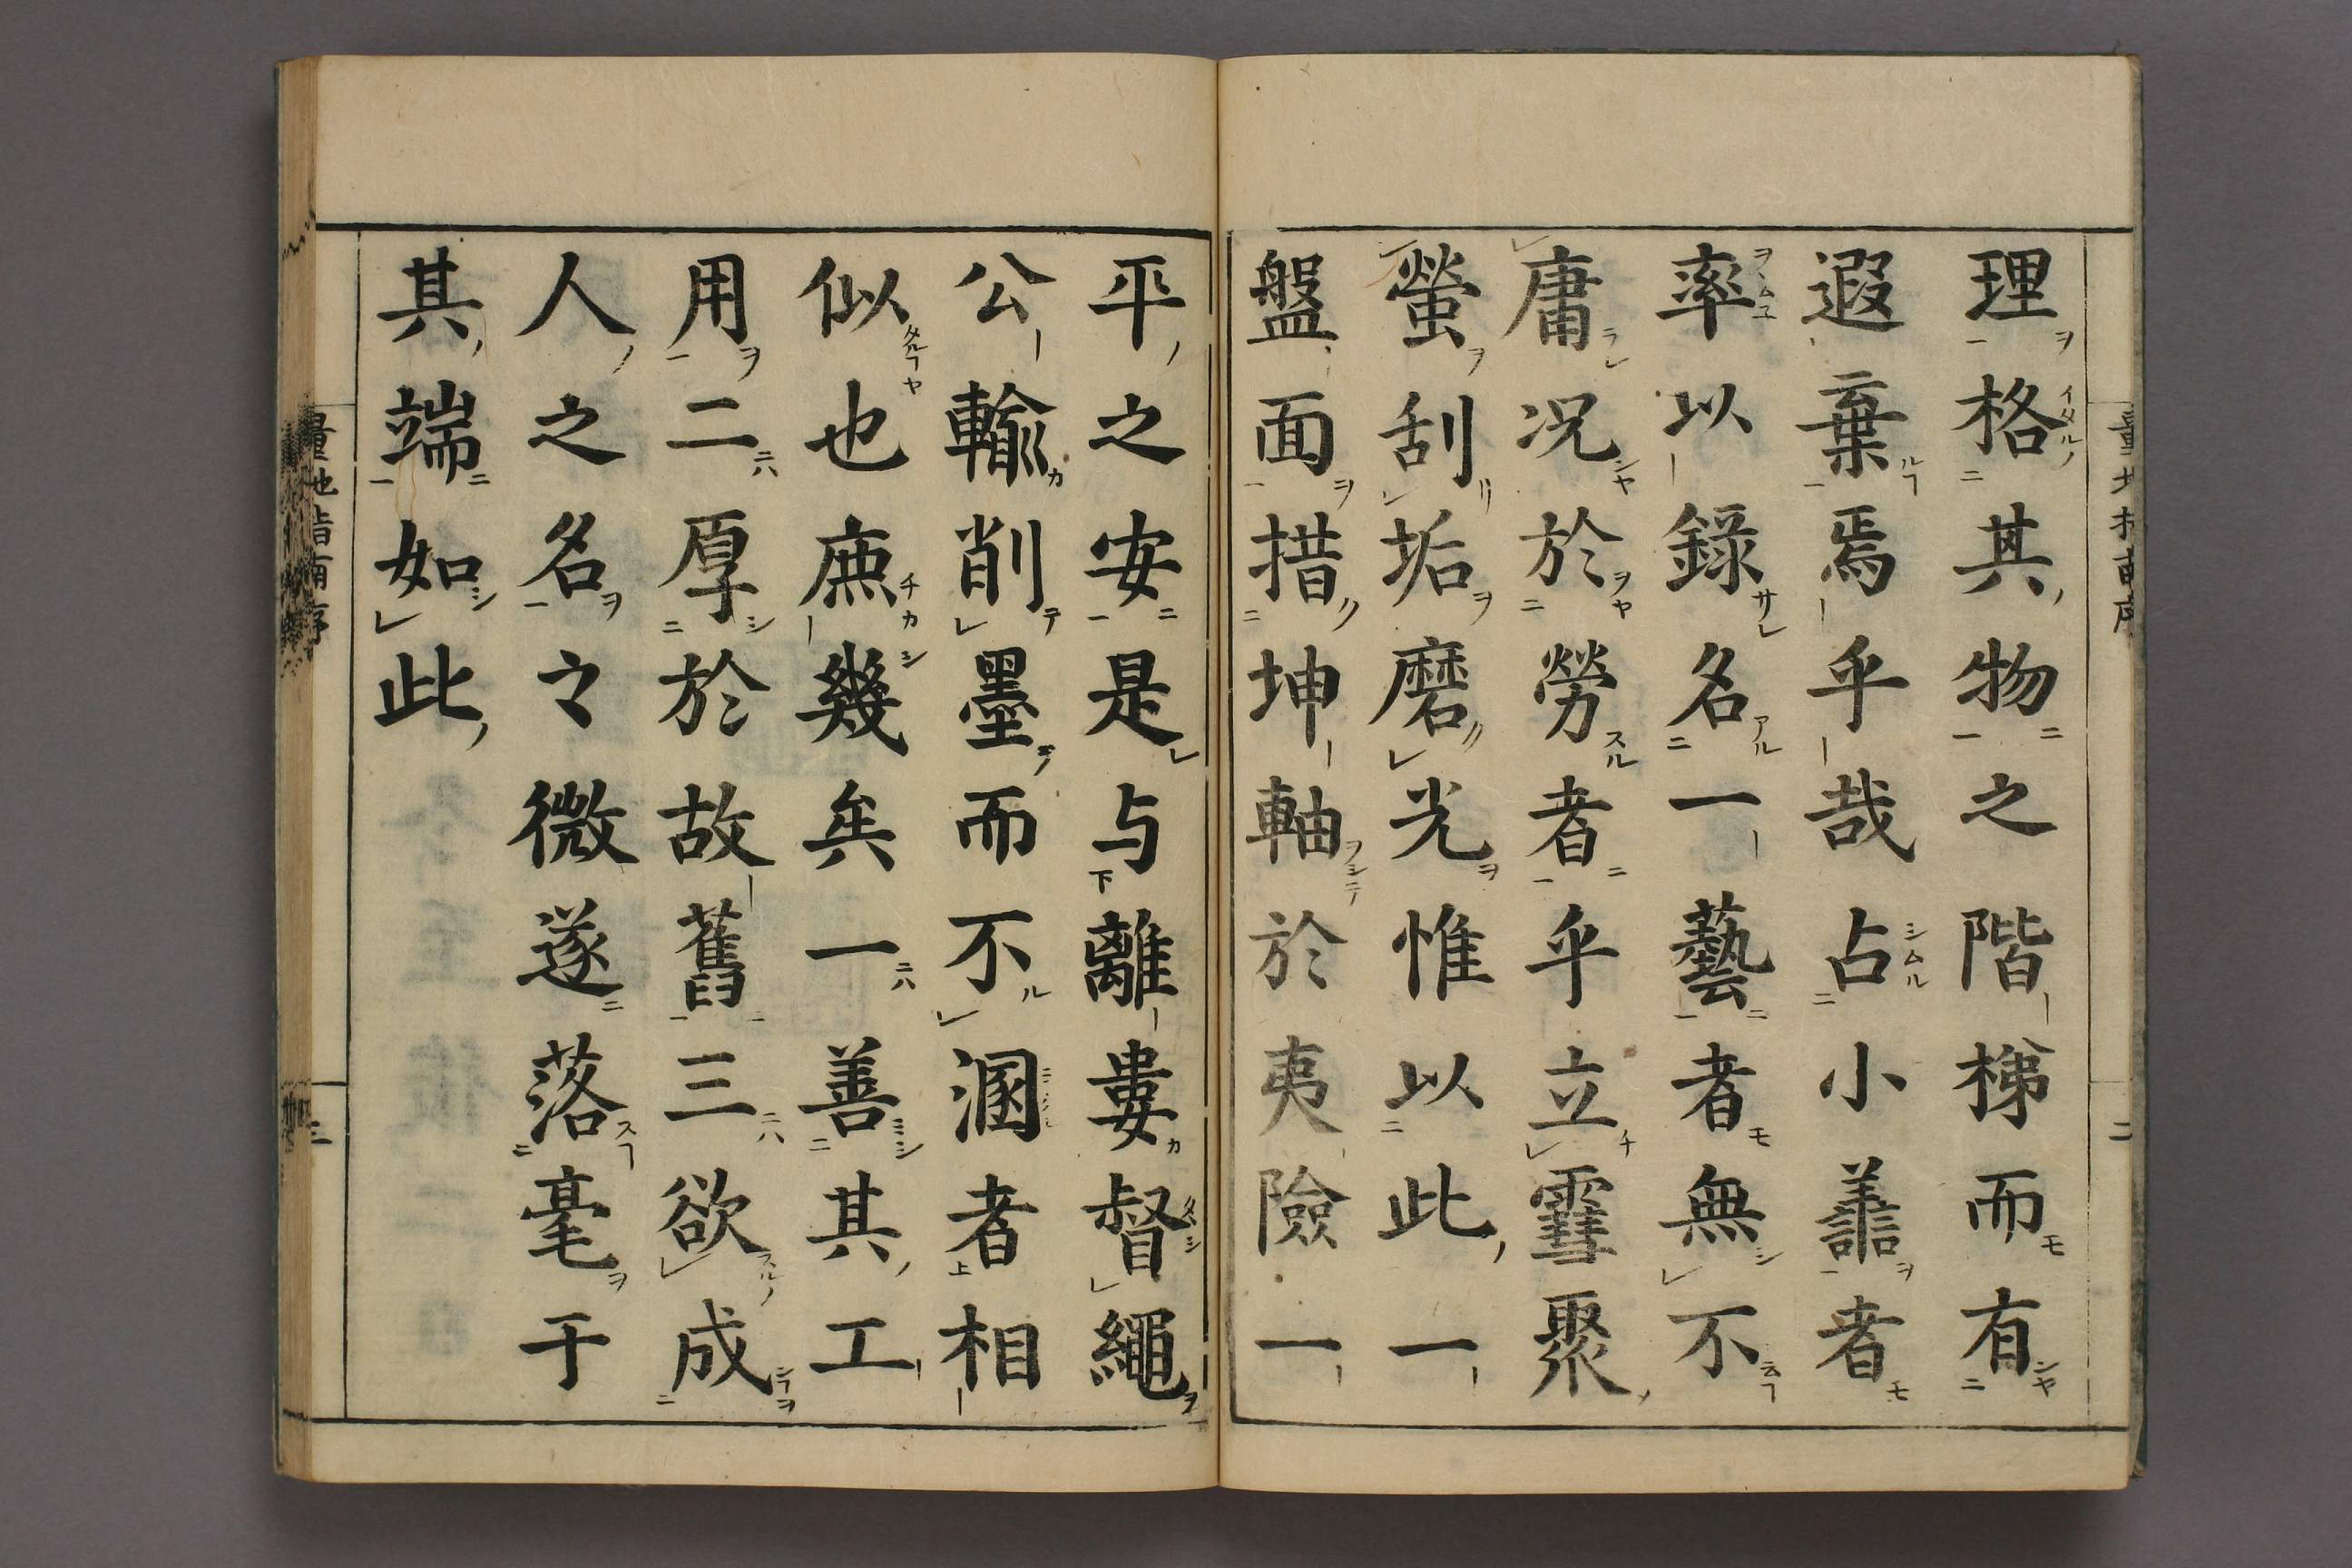 量地指南序 二
理格其物之階梯而有
遐棄焉乎哉占小譱者
率以錄名一藝者無不
庸况於勞者乎立雪聚
螢刮垢磨光惟以此一
盤面措坤軸於夷險一
平之安是与離婁督繩
公輸削墨而不溷者相
似也庶幾矣一善其工
用二厚於故舊三欲成
人之名々微遂落毫于
其端如此
量地指南序 三